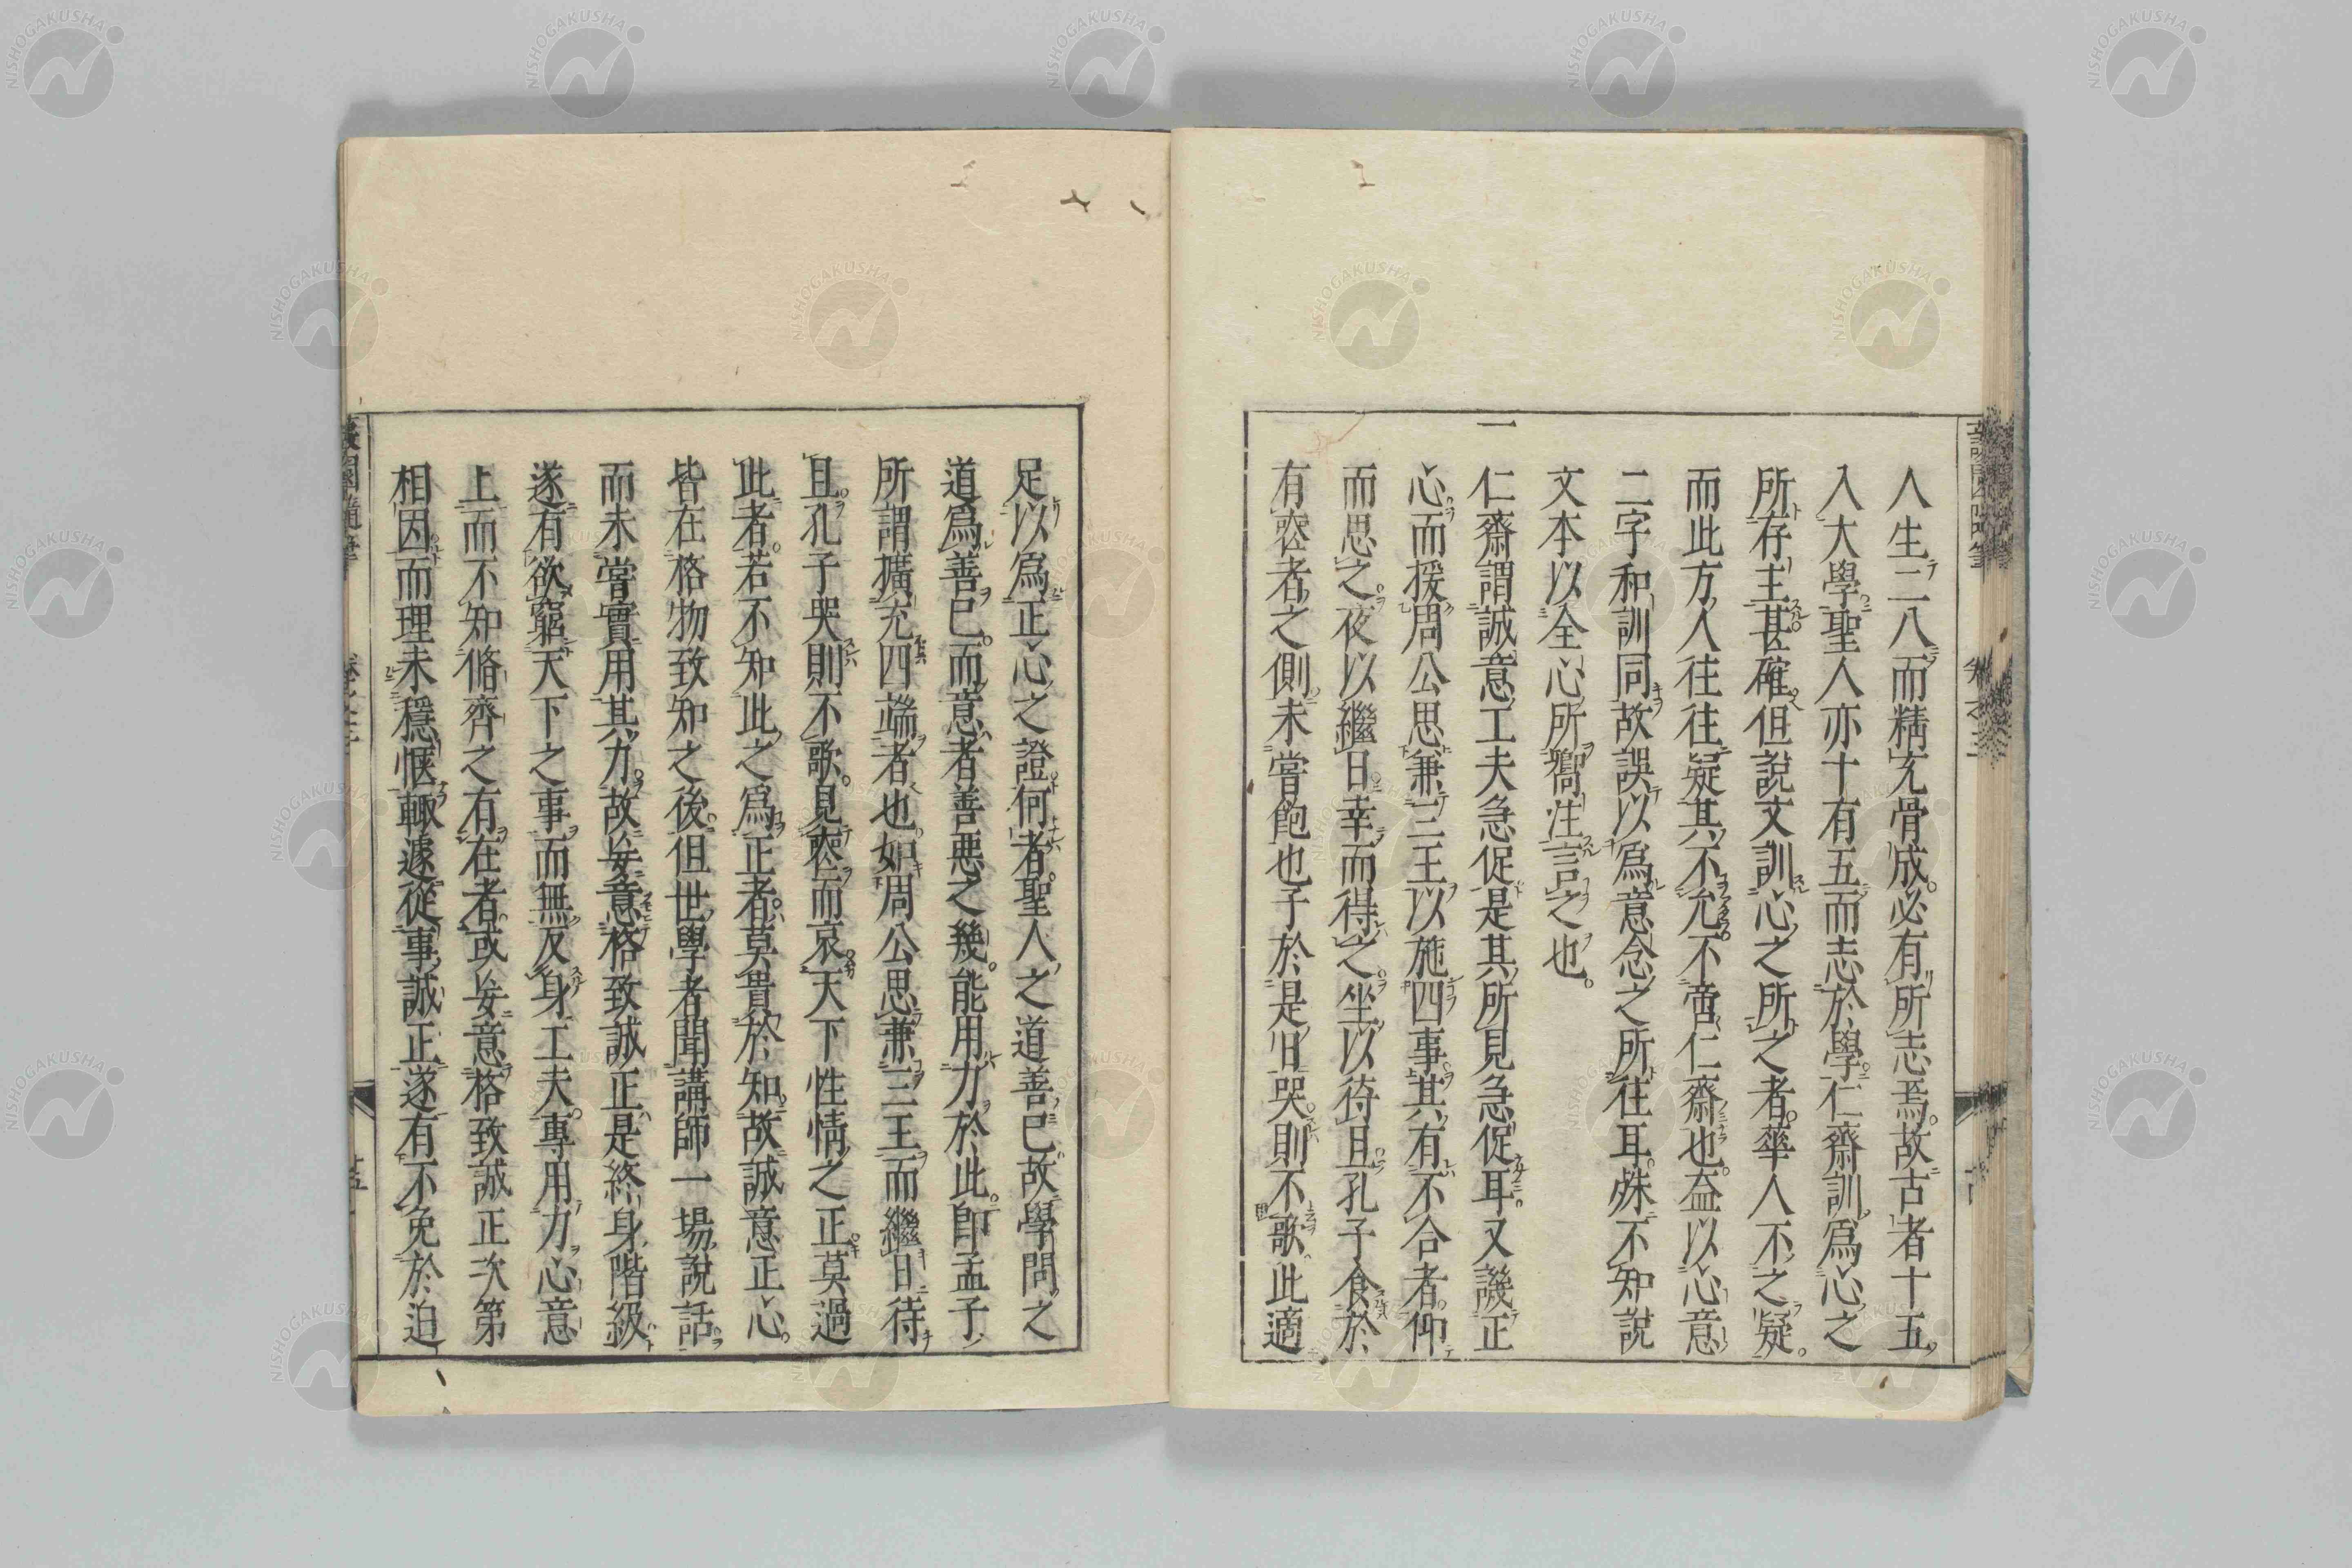 人生二八而精充骨成必有所志焉。故古者十五
入大學聖人亦十有五而志於學仁齋訓爲心之
所存主甚確但說文訓心之所之者。華人不之疑。
而此方人往往疑其不允。不啻仁齋也。益以心意
二字和訓同故誤以爲意念之所往耳。殊不知說
文本以全心所嚮注言之也。
一仁齋謂誠意工夫急促是其所見急促耳。又譏正
心而援周公思兼三王以施四事其有不合者仰
而思之。夜以繼日。幸而得之。坐以待旦孔子食於
有喪者之側未嘗飽也子於是日哭。則不歌。此適
足以爲正心之證何者。聖人之道善已故學問之
道爲善已。而意者善惡之幾。能用力於此。卽孟子
所謂擴充四端者也。如周公思兼三王而繼日待
旦。孔子哭則不歌。見喪而哀。天下性情之正。莫過
此者。若不知此之爲正者。莫貴於知。故誠意正心。
皆在格物致知之後。但世學者聞講師一場說話。
而未嘗實用其力。故妄意格致誠正是終身階級
遂有欲窮天下之事而無反身工夫。專用力心意
上而不知脩齊之有在者。或妄意格致誠正次第
相因。而理未穩愜輙遽從事誠正遂有不免於迫
卷之三
NISHOGAKUSHA